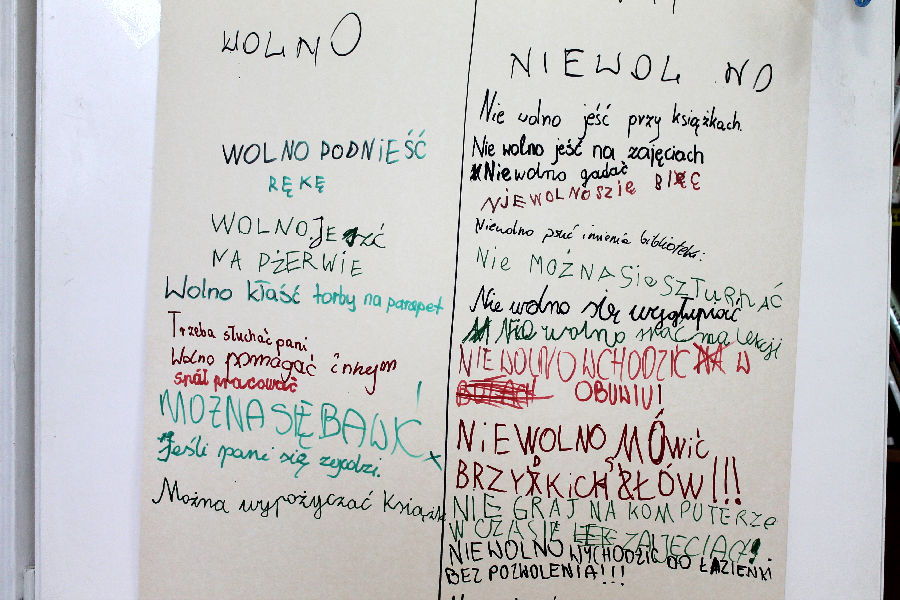 WOLNO
WOLNO PODNIEŚĆ
RĘKĘ
WOLNO JEŚĆ
NA PŻERWIE
Wolno kłaść torby na parapet
Trzeba słuchać pani
Wolno pomagać innym
spół pracować
MOŻNA SIĘ BAWIĆ!
Jeśli pani się zgodzi.
Można wypożyczać Książk
NIEWOLNO
Nie wolno jeść przy książkach.
Nie wolno jeść na zajęciach
Nie wolno gadać
NIEWOLNOSZIĘ BIĆ
Niewolno psuć imienia biblioteki.
Nie MOŻNA SIĘ SZTURPAĆ
Nie wolno się wygłupiać
Nie wolno spać na lekcji
NIEWOLNO WCHODZIĆ W
OBUWIU!
NIEWOLNO MÓWIĆ
BRZYDKICH SŁÓW!!!
NIE GRAJ NA KOMPUTERZE
W CZASIE ZAJĘCIACH!.
NIEWOLNO WYCHODZIĆ DO ŁAZIENKI
BEZ POZWOLENIA!!!